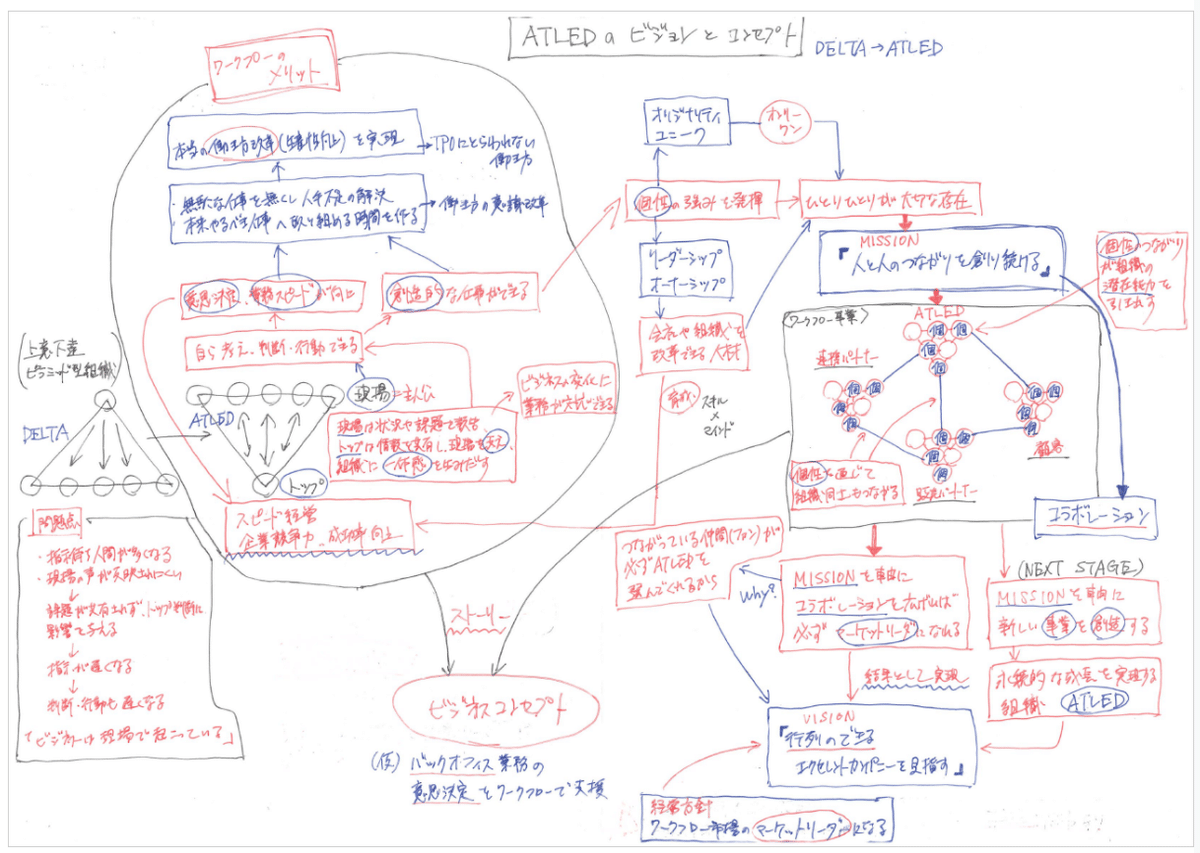 ATLEDの ビジョンと コンセプト
DELTA→ATLED
ワークフローの
メリット
本当の働き方改革(生産性向上)を実現
TPOにとらわれない
働き方
・無駄な仕事を無くし人手不足の解決
・本来やるべき仕事へ取り組める時間を作る
働き方の意識改革
意思決定、業務スピードが向上
創造的な仕事ができる
自ら考え、判断・行動できる
(上意下達
ピラミッド型組織)
DELTA
ATLED
現場=主人公
トップ
現場は状況や課題で数字
トップは情報を共有し、現場を支え、
組織に一体感を生みだす
ビジネスの変化に
業務が対応できる
スピード経営
企業競争力、成功率向上
問題点
・指示待ち人間が多くなる
・現場の声が反映されにくい
↓
課題が共有されず、トップ判断に
影響を与える
↓
指示が遅くなる
↓
判断・行動も遅くなる
「ビジネスは現場で起こっている」
ストーリー
ビジネスコンセプト
(仮) バックオフィス業務の
意思決定をワークフローで支援
オリジナリティ
ユニーク
オンリー
ワン
個性の強みを発揮
ひとりひとりが大切な存在
リーダーシップ
オーナーシップ
会社や組織を
改革できる人材
育成
スキル
×
マインド
MISSION
『人と人のつながりを創り続ける』
個性のつながり
が組織の
潜在能力を
引き出す
ワークフロー事業
ATLED
連携パートナー
個
顧客
個性を通じて
組織同士もつながる
販売パートナー
コラボレーション
つながっている仲間(ファン)が
必ずATLEDを
選んでくれるから
Why?
MISSIONを軸に
コラボレーションを広げれば
必ずマーケットリーダーになれる
結果として実現
(NEXT STAGE)
MISSIONを軸に
新しい事業を創造する
永続的な成長を実現する
組織 ATLED
VISION
『行列のできる
エクセレントカンパニーを目指す』
経営方針
ワークフロー市場のマーケットリーダーになる